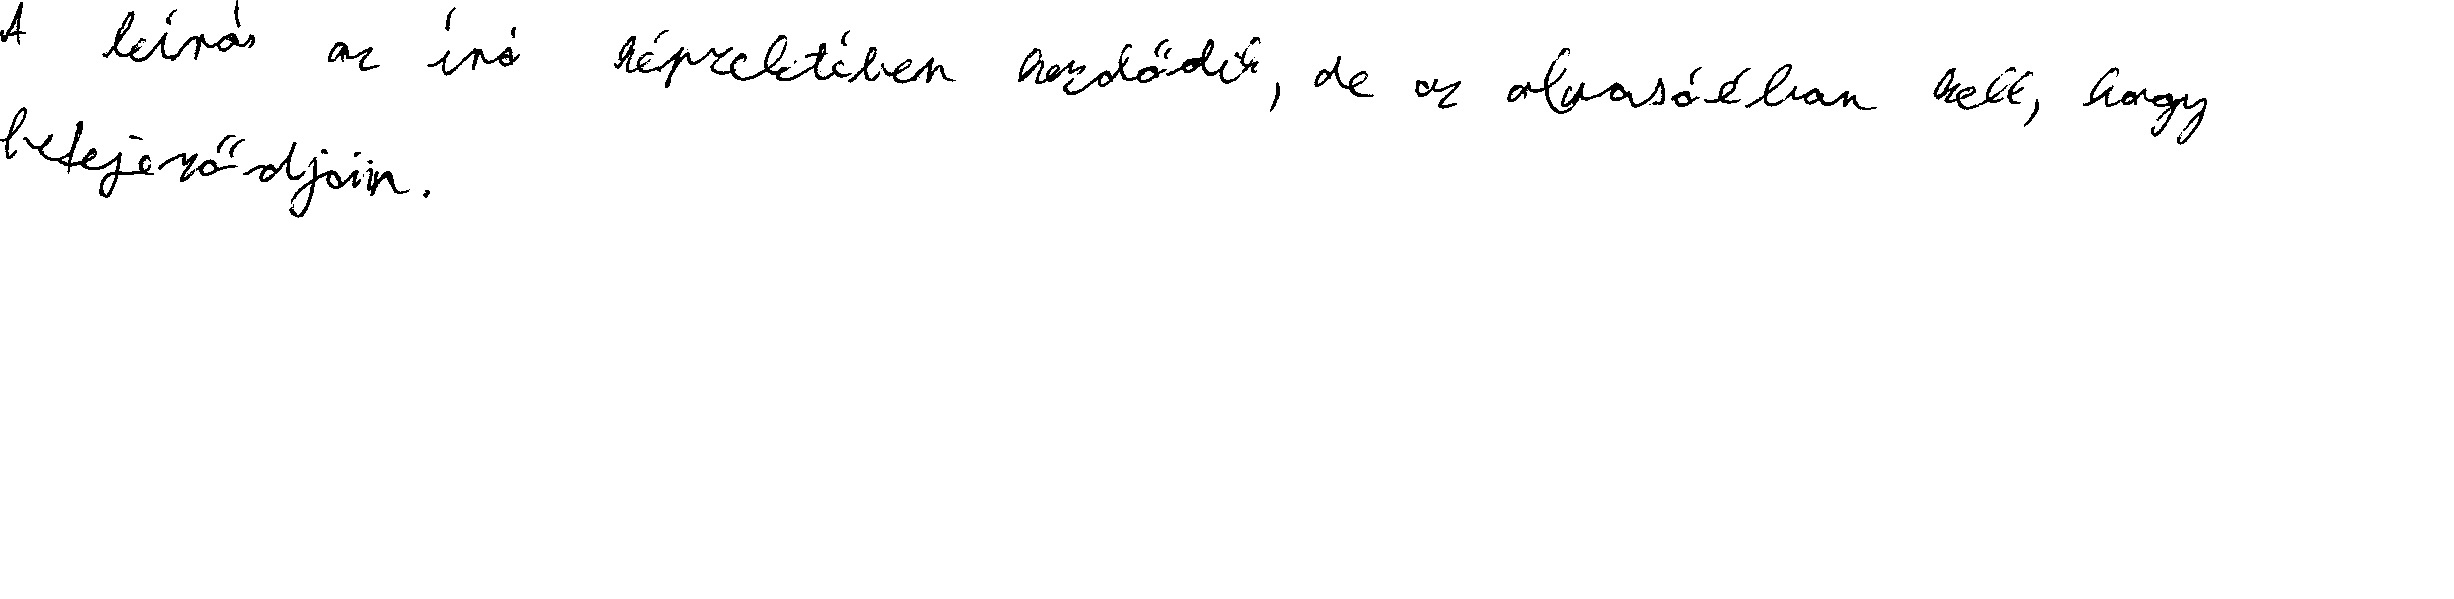 A leírás az író képzeletében kezdődik, de az olvasóéban kell, hogy
befejeződjön.